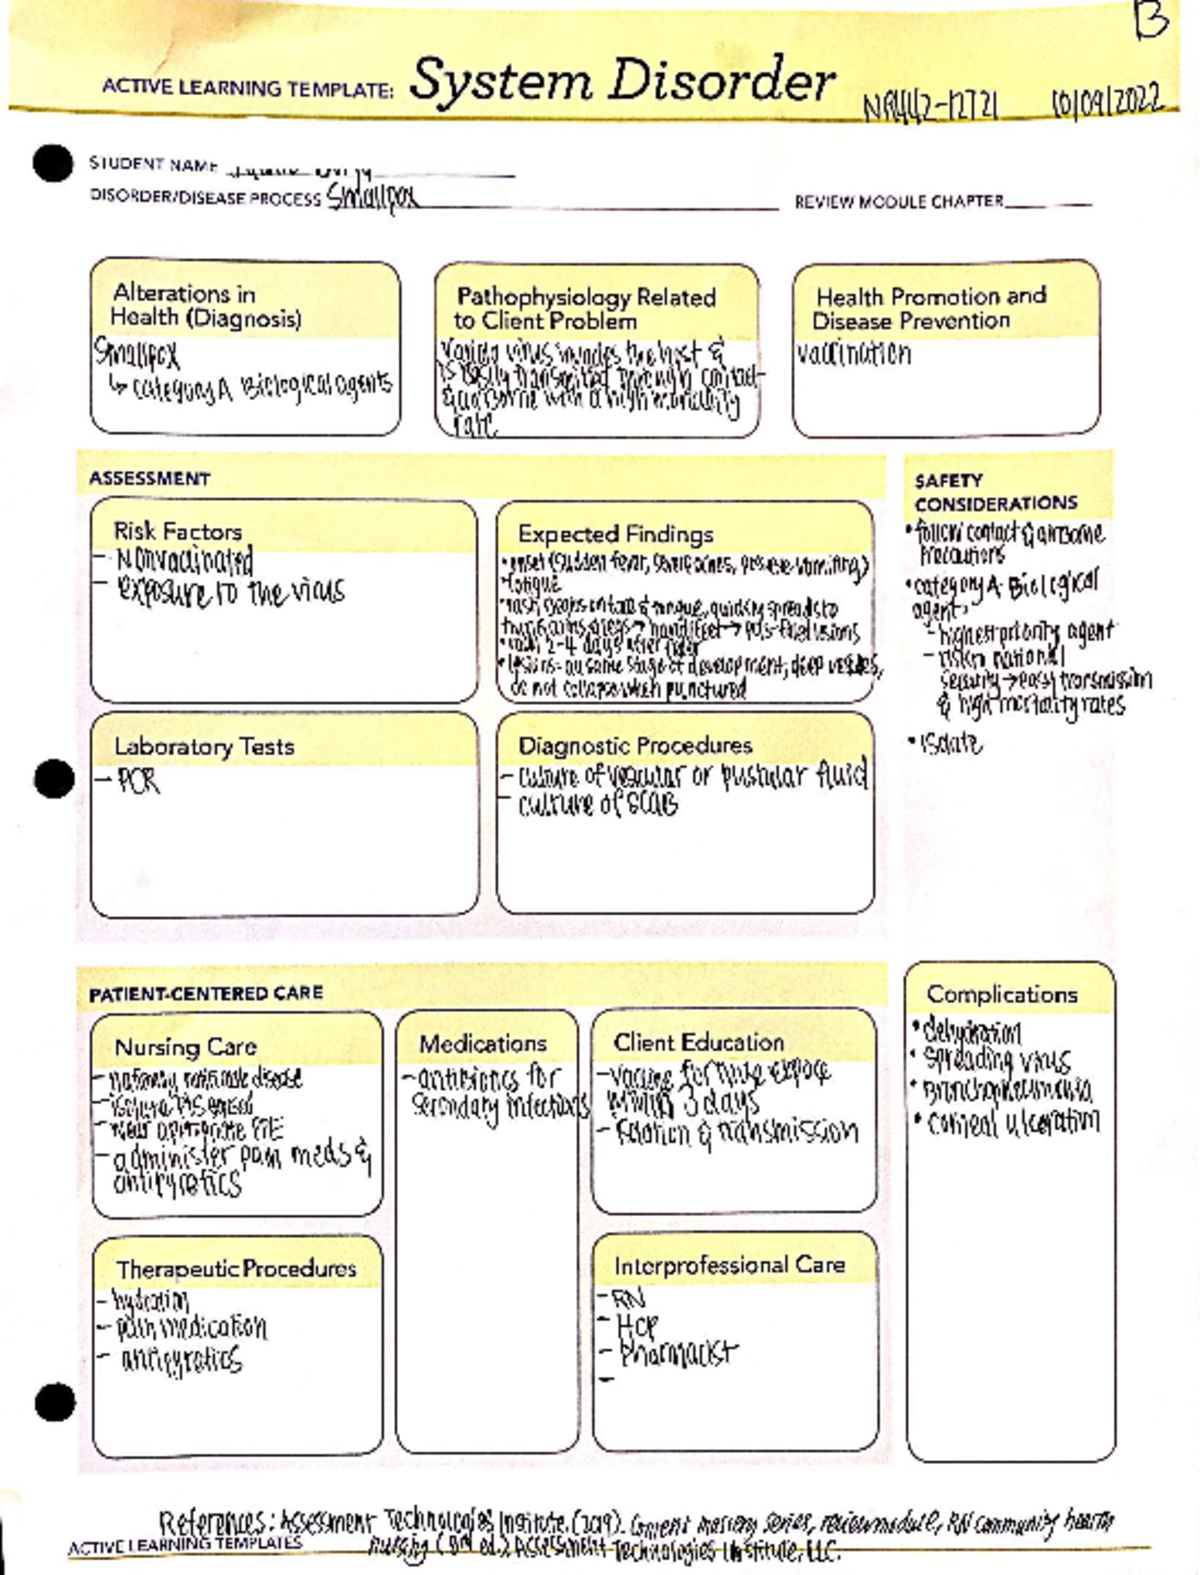 B
ACTIVE LEARNING TEMPLATE: System Disorder
NR442-12721 10/09/2022
STUDENT NAME
DISORDER/DISEASE PROCESS Smallpox
REVIEW MODULE CHAPTER
Alterations in
Health (Diagnosis)
Smallpox
↳ category A Biological agents
Pathophysiology Related
to Client Problem
Variola virus invades the host &
is easily transmitted through contact
& airborne with a high mortality
rate
Health Promotion and
Disease Prevention
vaccination
ASSESSMENT
Risk Factors
- Nonvaccinated
- exposure to the virus
Expected Findings
• onset (sudden fever, severe aches, vomiting)
• fatigue
• rash begins on face & tongue, quickly spreads to
trunk, arms, legs → hand/feet → pus-filled lesions
• rash 2-4 days after fever
• lesions- all same stage of development, deep vesicles,
do not collapse when punctured
Laboratory Tests
- PCR
Diagnostic Procedures
- culture of vesicular or pustular fluid
- culture of scab
SAFETY
CONSIDERATIONS
• follow contact & airborne
precautions
• category A Biological
agent
- highest priority agent
- risk national
security → easy transmission
& high mortality rates
• isolate
PATIENT-CENTERED CARE
Nursing Care
- disease
- isolate
- Wear PPE
- administer pain meds &
antipyretics
Medications
- antibiotics for
secondary infections
Client Education
- vaccine for expose
within 3 days
- & transmission
Complications
• dehydration
• spreading virus
• Bronchopneumonia
• corneal ulceration
Therapeutic Procedures
- hydration
- pain medication
- antipyretics
Interprofessional Care
- RN
- HCP
- Pharmacist
-
References: Assessment Technologies Institute. (2019). Content mastery series, review module, RN community health
nursing ( ed.) Assessment Technologies Institute, LLC.
ACTIVE LEARNING TEMPLATES